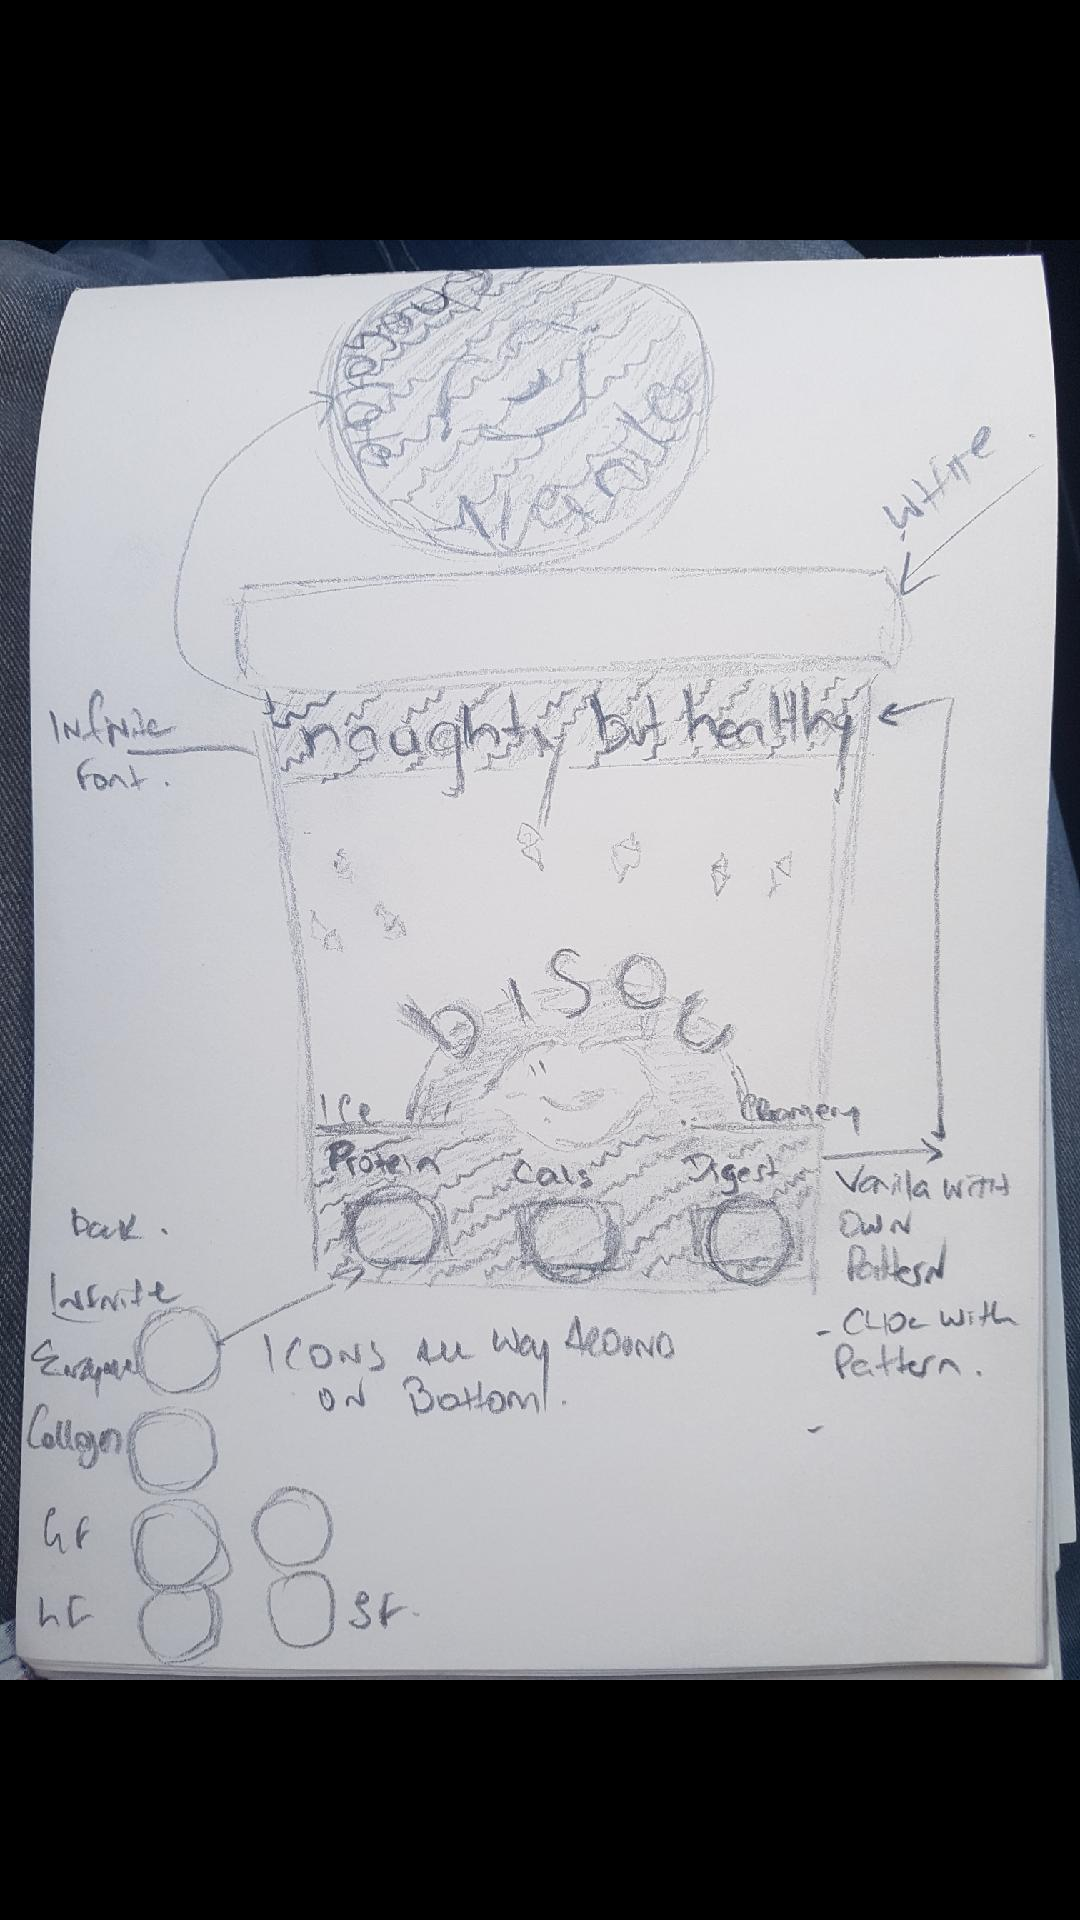 Chocolate
Vanila
White
naughty but healthy
Infinite
Font.
bisou
Ice
Creamery
Protein
Cals
Digest
Vanila with
own
Pattern
- Choc with
Pattern.
Dark.
Infinite
Icons all way around
on Bottom.
Collagen
GF
SF.